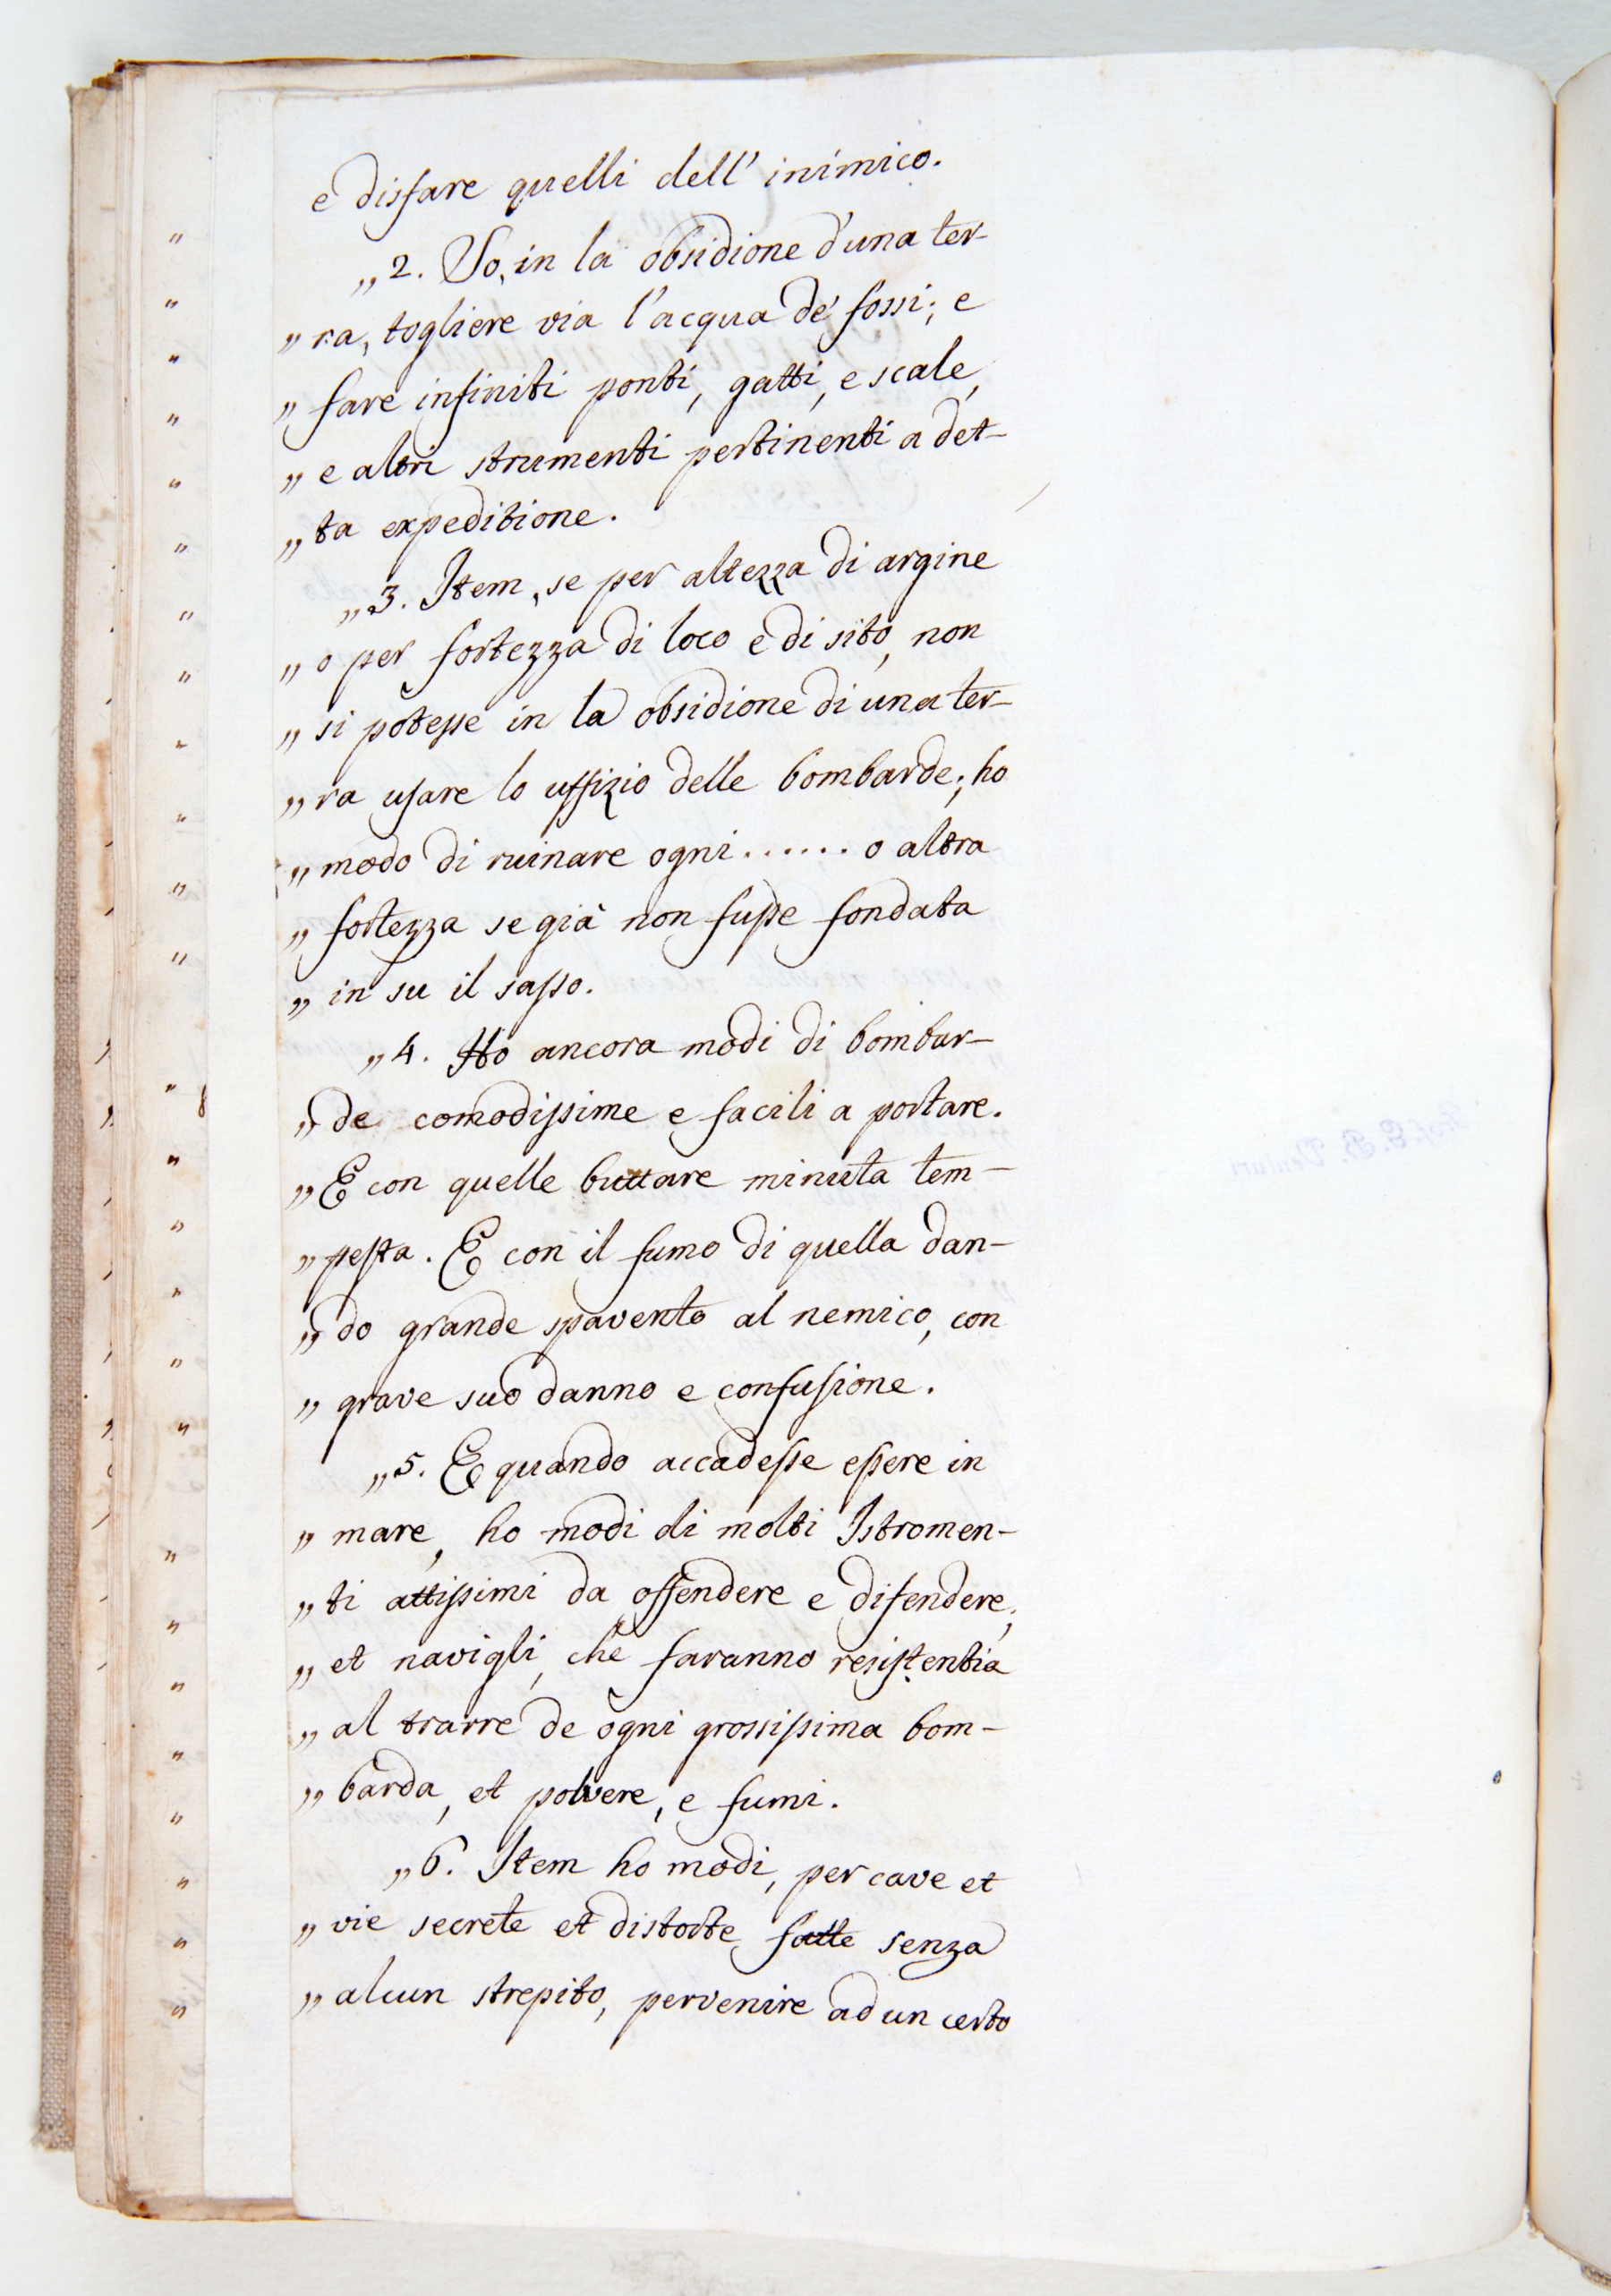 e disfare quelli dell' inimico.
„ 2. So, in la obsidione d'una ter-
„ ra, togliere via l'acqua de' fossi; e
„ fare infiniti ponti, gatti, e scale,
„ e altri strumenti pertinenti a det-
„ ta expeditione.
„ 3. Item, se per altezza di argine
„ o per fortezza di loco e di sito, non
„ si potesse in la obsidione di una ter-
„ ra usare lo uffizio delle bombarde; ho
„ modo di ruinare ogni ...... o altra
„ fortezza se già non fusse fondata
„ in su il sasso.
„ 4. Ho ancora modi di bombar-
„ de comodissime e facili a portare.
„ E con quelle buttare minuta tem-
„ pesta. E con il fumo di quella dan-
„ do grande spavento al nemico, con
„ grave suo danno e confusione.
„ 5. E quando accadesse essere in
„ mare, ho modi di molti Istromen-
„ ti attissimi da offendere e difendere;
„ et navigli, che faranno resistentia
„ al trarre de ogni grossissima bom-
„ barda, et polvere, e fumi.
„ 6. Item ho modi, per cave et
„ vie secrete et distorte, fatte senza
„ alcun strepito, pervenire ad un certo